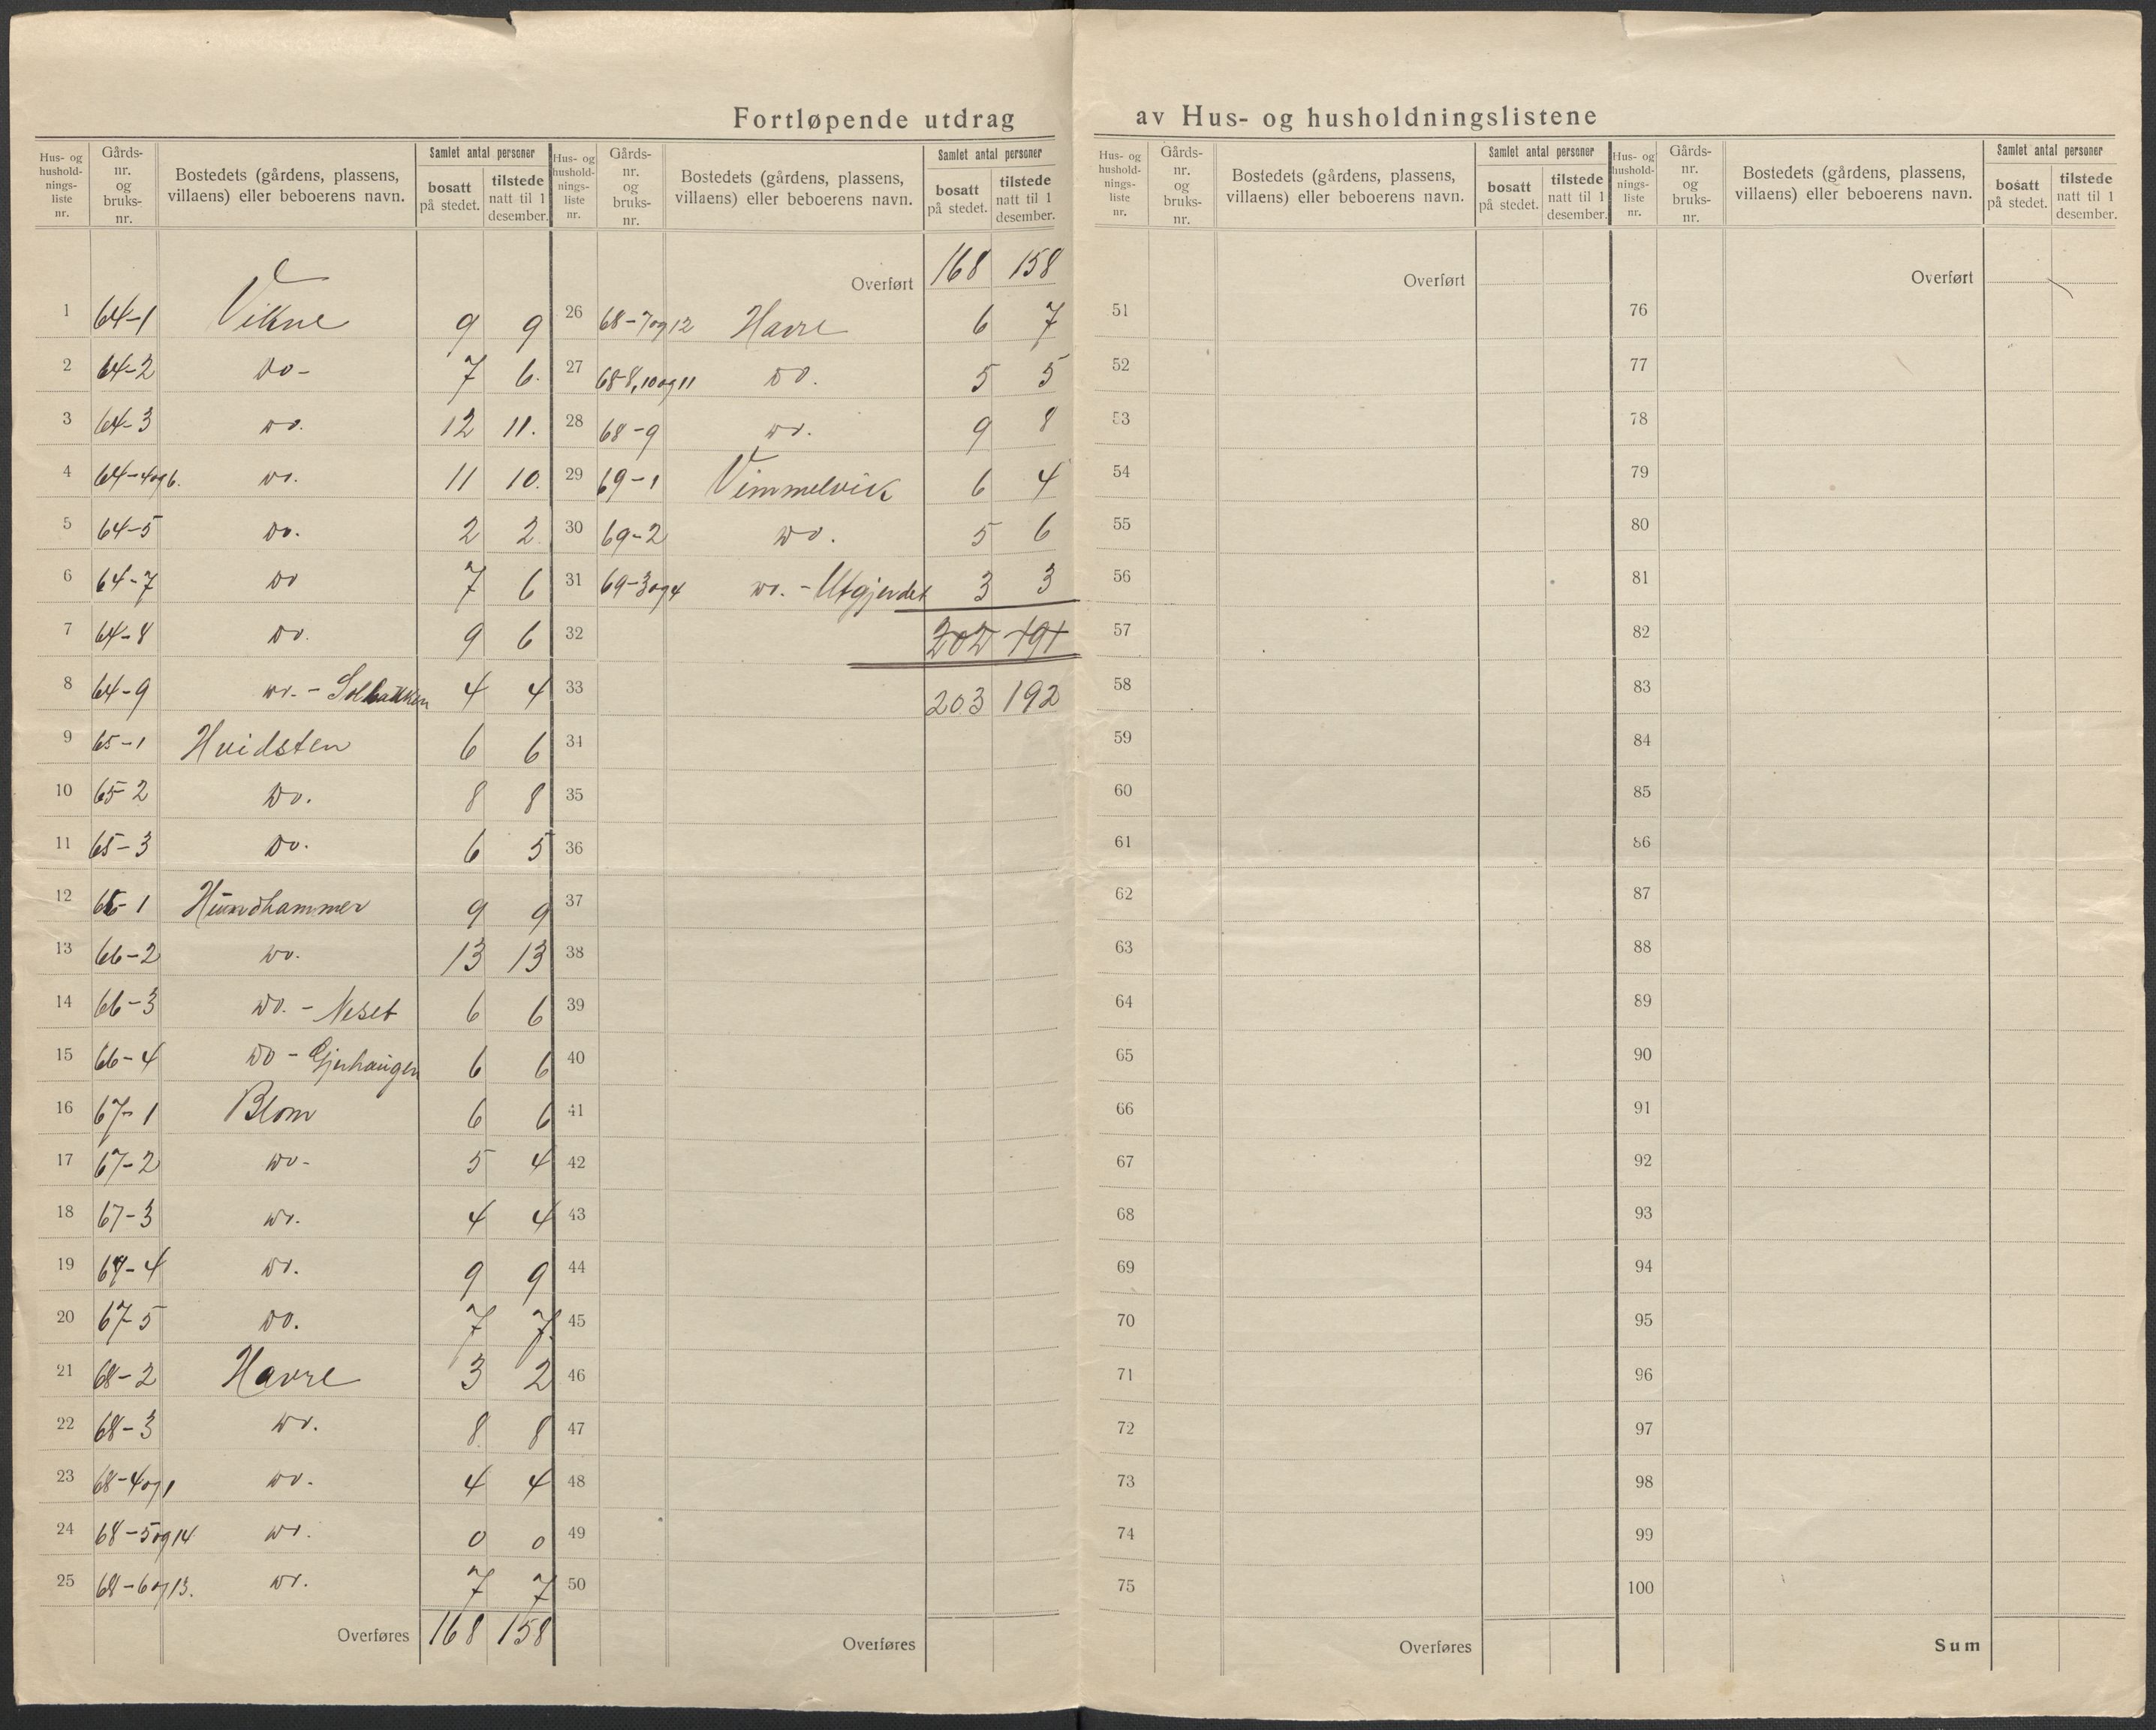 Fortløpende utdrag av Hus- og husholdningslistene
Hus- og hushold-nings-liste nr. | Gårds-nr. og bruks-nr. | Bostedets (gårdens, plassens, villaens) eller beboerens navn. | Samlet antal personer | bosatt på stedet. | tilstede natt til 1 desember.
1 64-1 Vikne 9 9
2 64-2 Do- 7 6.
3 64-3 Do. 12 11.
4 64-4og6. Do. 11 10.
5 64-5 Do. 2 2
6 64-7 Do 7 6
7 64-8 Do. 9 6
8 64-9 Do. - Solbakken 4 4
9 65-1 Hvidsten 6 6
10 65-2 Do. 8 8
11 65-3 Do. 6 5
12 66-1 Hundhammer 9 9
13 66-2 Do. 13 13
14 66-3 Do. - Neset 6 6
15 66-4 Do - Gjerhaugen 6 6
16 67-1 Blom 6 6
17 67-2 Do- 5 4
18 67-3 Do. 4 4
19 67-4 Do. 9 9
20 67-5 Do. 7 7.
21 68-2 Havre 3 2
22 68-3 Do. 8 8
23 68-4og1 Do. 4 4
24 68-5og14 Do. 0 0
25 68-6og13. Do. 7 7
Overføres 168 158
Hus- og hushold-nings-liste nr. | Gårds-nr. og bruks-nr. | Bostedets (gårdens, plassens, villaens) eller beboerens navn. | Samlet antal personer | bosatt på stedet. | tilstede natt til 1 desember.
Overført 168 158
26 68-7og12 Havre 6 7
27 68-8,10og11 Do. 5 5
28 68-9 Do. 9 8
29 69-1 Vimmelvik 6 4
30 69-2 Do. 5 6
31 69-3og4 Do. - Utgjerdet 3 3
32 202 191
33 203 192
34
35
36
37
38
39
40
41
42
43
44
45
46
47
48
49
50
Overføres
Hus- og hushold-nings-liste nr. | Gårds-nr. og bruks-nr. | Bostedets (gårdens, plassens, villaens) eller beboerens navn. | Samlet antal personer | bosatt på stedet. | tilstede natt til 1 desember.
Overført
51
52
53
54
55
56
57
58
59
60
61
62
63
64
65
66
67
68
69
70
71
72
73
74
75
Overføres
Hus- og hushold-nings-liste nr. | Gårds-nr. og bruks-nr. | Bostedets (gårdens, plassens, villaens) eller beboerens navn. | Samlet antal personer | bosatt på stedet. | tilstede natt til 1 desember.
Overført
76
77
78
79
80
81
82
83
84
85
86
87
88
89
90
91
92
93
94
95
96
97
98
99
100
Sum